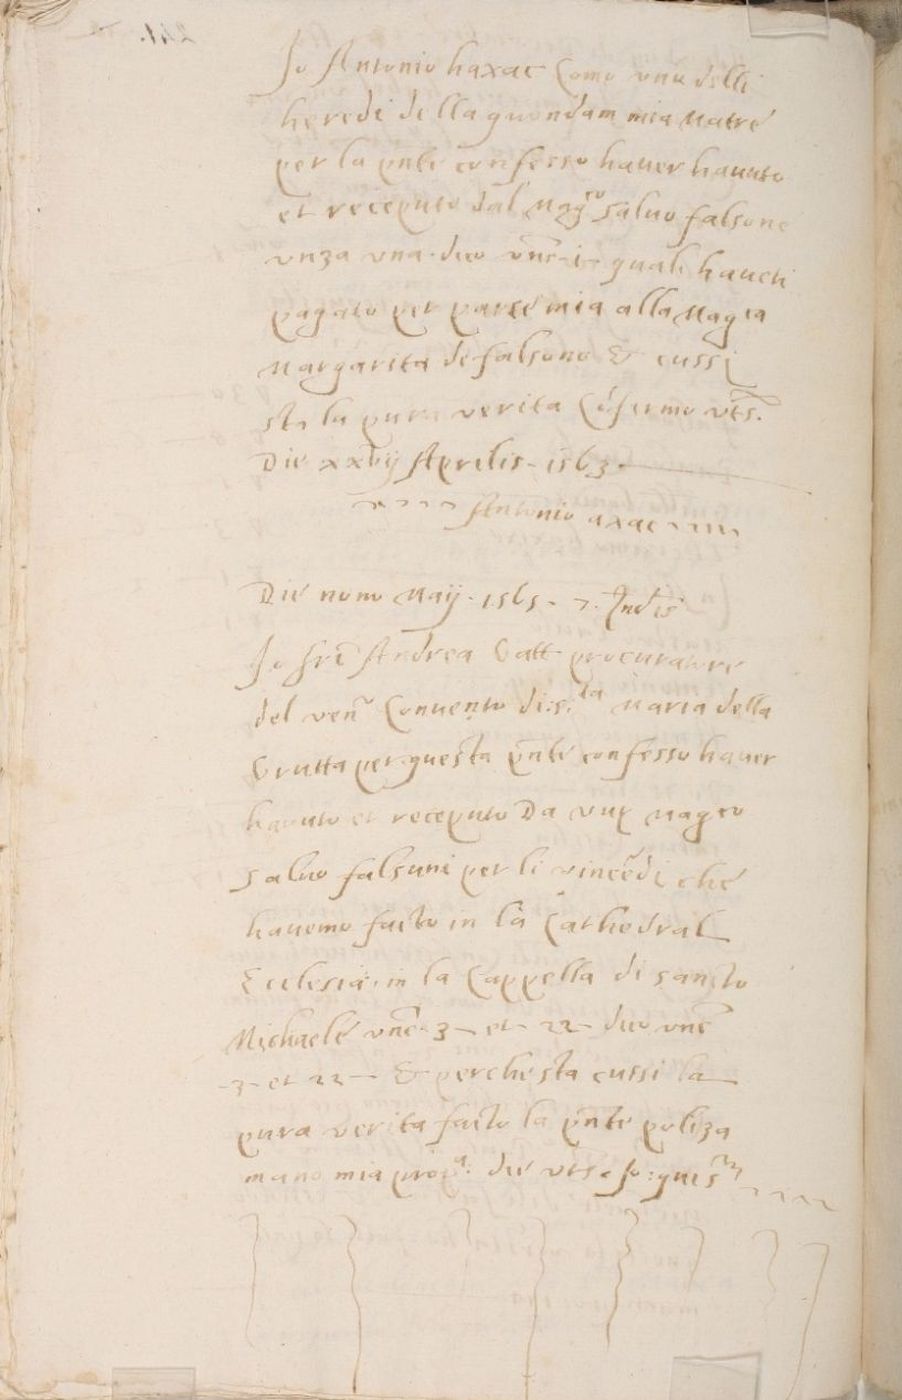 Jo Antonio haxac Como vnu delli
heredi della quondam mia Matre
per la pnte confesso hauer hauuto
et receputo dal Magco Saluo falsone
vnza vna dico vnc -i- quali haueti
pagato per parte mia alla Magca
Margarita de falsono & cussi
sta la pura verita Cofermo vts.
Die xxvij Aprilis - 1563 -
Antonio axac
Die nono Maij - 1565 - 7. Indis
Jo fre Andrea Gatt procuratore
del ven Conuento di s.ta Maria della
Grutta per questa pnte confesso hauer
hauuto et receputo Da vuy magco
Saluo falsuni per li che
hauemo facto in la Cathedral
Ecclesia, in la Cappella di sancto
Michaele vnc -3- et - 22 - dico vnc
-3- et 22 - & perche sta cussi la
pura verita facto la pnte poliza
mano mia propa. die vts